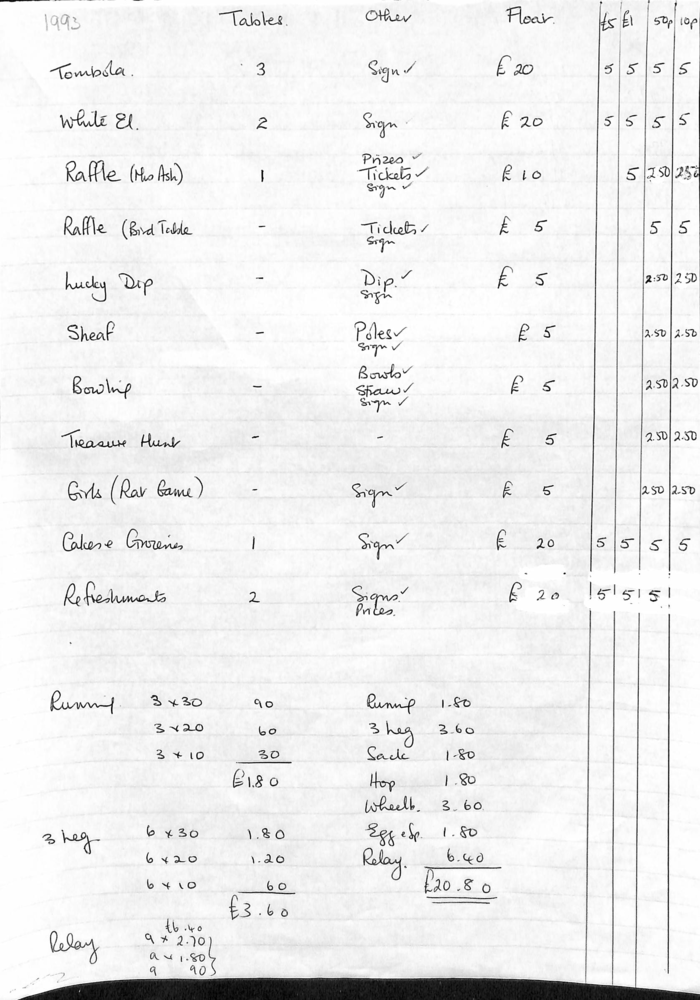 1993 Tables. Other Float. £5 £1 50p 10p
Tombola. 3 Sign ✓ £20 5 5 5 5
White El. 2 Sign £20 5 5 5 5
Raffle (Mrs Ash) 1 Prizes ✓ £10 5 2.50 2.50
Tickets ✓
Sign ✓
Raffle (Bird Table - Tickets ✓ £ 5 5 5
Sign
Lucky Dip - Dip. ✓ £ 5 2.50 2.50
Sign
Sheaf - Poles ✓ £ 5 2.50 2.50
Sign ✓
Bowling - Bowls ✓ £ 5 2.50 2.50
Straw ✓
Sign ✓
Treasure Hunt - - £ 5 2.50 2.50
Girls (Rat Game) - Sign ✓ £ 5 2.50 2.50
Cakes & Groceries 1 Sign ✓ £ 20 5 5 5 5
Refreshments 2 Signs ✓ £ 20 5 5 5
Prices.
Running 3 x 30 90 Running 1.80
3 x 20 60 3 Leg 3.60
3 x 10 30 Sack 1.80
£1.80 Hop 1.80
Wheelb. 3.60
3 Leg 6 x 30 1.80 Egg & Sp. 1.80
6 x 20 1.20 Relay. 6.40
6 x 10 60 £20.80
£3.60
£6.40
Relay 9 x 2.70
9 x 1.80
9 90